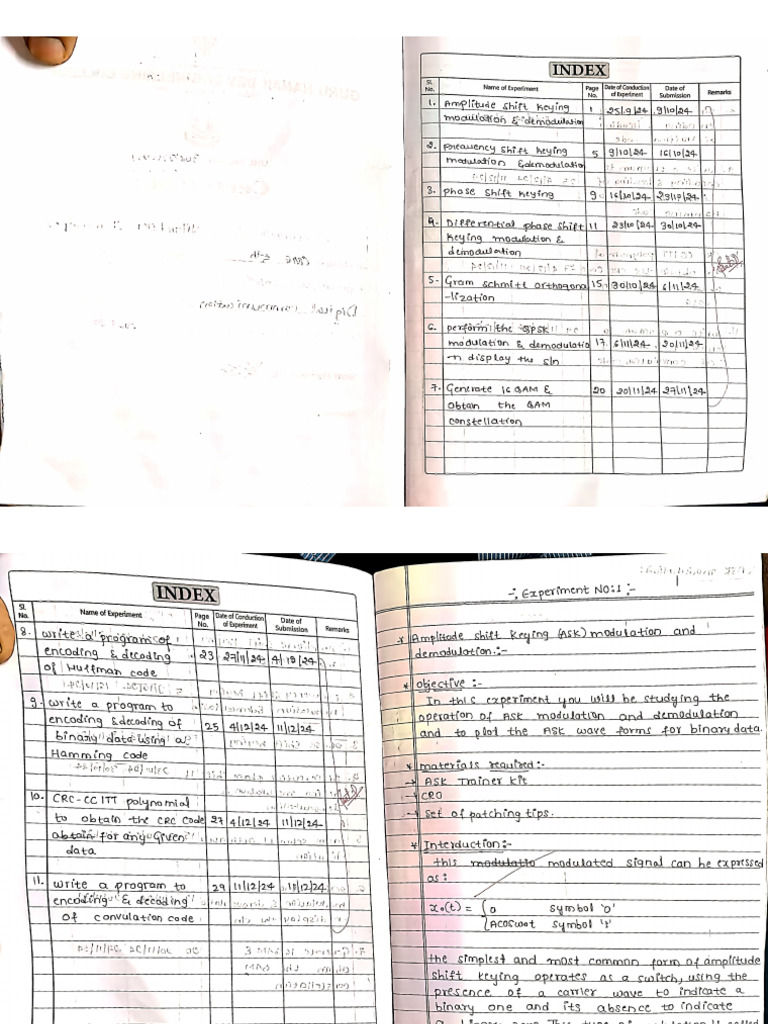 INDEX
Sl. No. Name of Experiment Page No. Date of Conduction of Experiment Date of Submission Remarks
1. Amplitude shift keying 1 25/9/24 9/10/24
modulation & demodulation
2. Frequency shift keying 5 9/10/24 16/10/24
modulation & demodulatio
3. phase shift keying 9 16/10/24 23/10/24
4. Differential phase shift 11 23/10/24 30/10/24
keying modulation &
demodulation
5. Gram schmitt orthogona 15 30/10/24 6/11/24
-lization
6. perform the QPSK
modulation & demodulatio 17 6/11/24 20/11/24
-n display the s/n
7. Generate 16 QAM & 20 20/11/24 27/11/24
obtain the QAM
constellation
Digital communication
INDEX
Sl. No. Name of Experiment Page No. Date of Conduction of Experiment Date of Submission Remarks
8. write a program of
encoding & decoding 23 27/11/24 4/12/24
of Huffman code
9. write a program to
encoding & decoding of 25 4/12/24 11/12/24
binary data using a
Hamming code
10. CRC-CCITT polynomial
to obtain the CRC code 27 4/12/24 11/12/24
obtain for any Given
data
11. write a program to 29 11/12/24 18/12/24
encoding & decoding
of convulation code
-: Experiment NO:1 :-
* Amplitude shift keying (ASK) modulation and
demodulation:-
* objective :-
In this experiment you will be studying the
operation of ASK modulation and demodulation
and to plot the ASK wave forms for binary data.
* materials required:-
→ ASK Trainer kit
→ CRO
→ set of patching tips.
* Interduction:-
this modulatio modulated signal can be expressed
as:
x₀(t) = { 0 symbol '0'
{ ACOSw0t symbol '1'
the simplest and most common form of amplitude
shift keying operates as a switch, using the
presence of a carrier wave to indicate a
binary one and its absence to indicate
a binary zero. This type of modulation is called